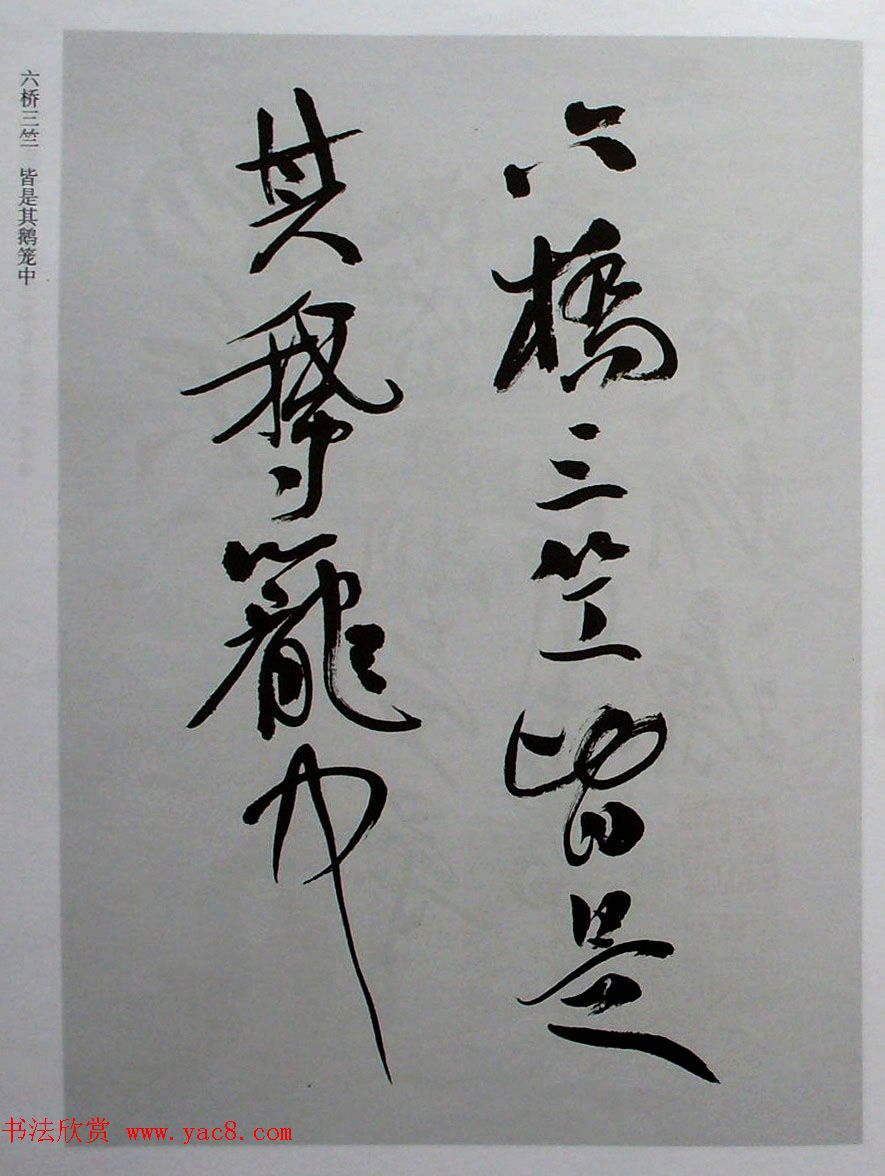 六橋三竺皆是
其鵞籠中
六桥三竺 皆是其鹅笼中
书法欣赏 www.yac8.com